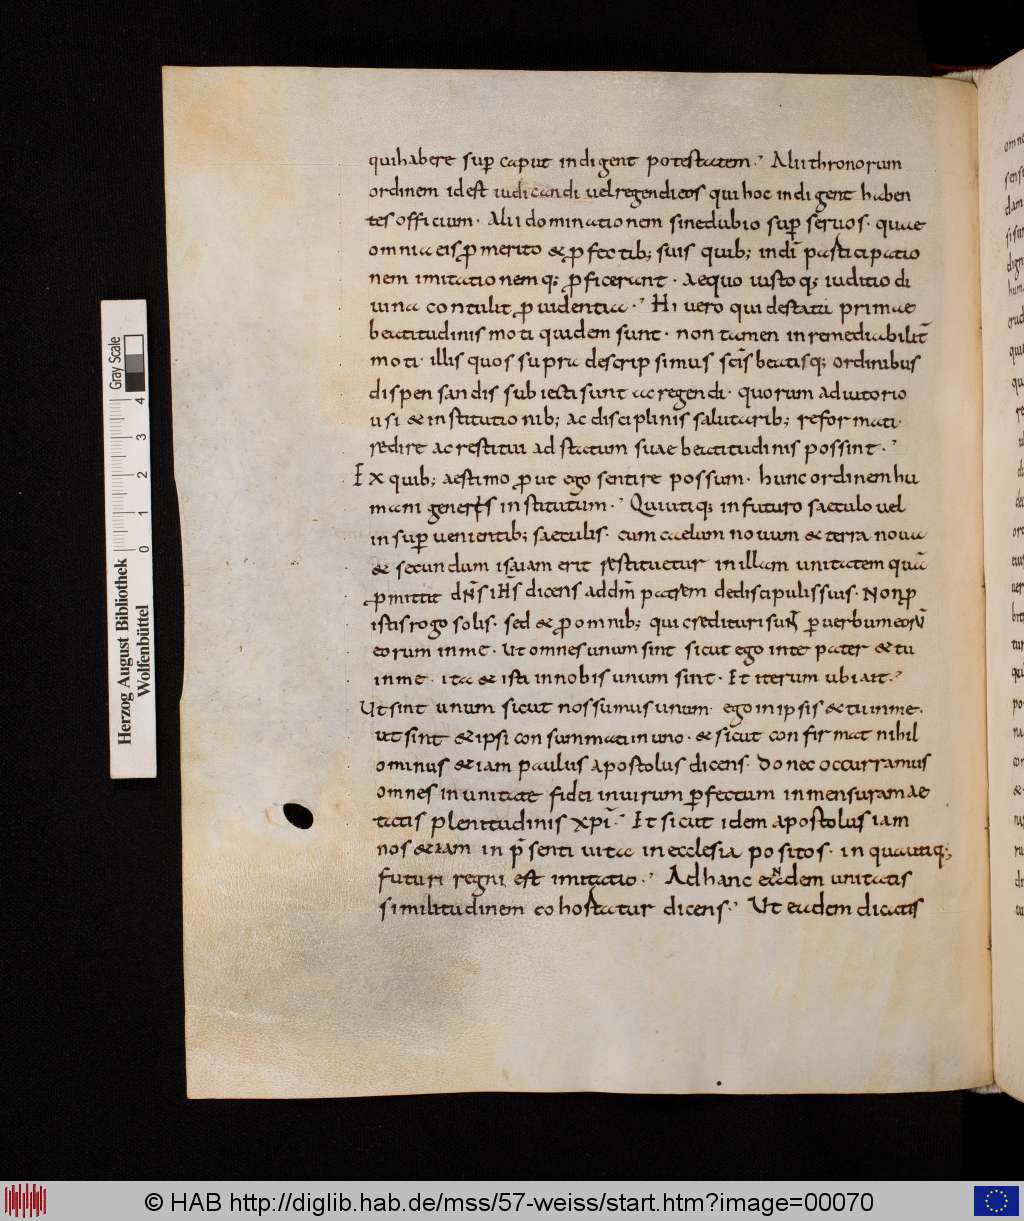 qui habere sup̄ caput indigent potestatem. Alii thronorum
ordinem id est iudicandi uel regendi eos qui hoc indigent haben
tes officium. Alii dominationem sine dubio sup̄ seruos. quae
omnia eis ꝓ merito & ꝑfectib; suis quib; indi p̄asticipatio
nem imitationemq; ꝓficerant. Aequo iustoq; iuditio di
uina contulit ꝓuidentia. Hi uero qui de statu primae
beatitudinis moti quidem sunt. non tamen inremediabilit̄
moti. illis quos supra descripsimus sc̄is beatisq; ordinibus
dispensandis subiecti sunt ac regendi. quorum adiutorio
usi & institutionib; ac disciplinis salutarib; reformati
redire ac restitui ad statum suae beatitudinis possint.
Ex quib; aestimo ꝓut ego sentire possum. hunc ordinem hu
mani generis institutum. Qui utiq; in futuro saeculo uel
in suꝑuenientib; saeculis. cum caelum nouum & terra noua
& secundum isaiam erit restituetur in illam unitatem quā
ꝓmittit dn̄s ih̄s dicens ad dm̄ patrem de discipulis suis. Non ꝓ
istis rogo solis. sed & ꝓ omnib; qui credituri sunt ꝑ uerbum eorū
eorum in me. Ut omnes unum sint sicut ego in te pater & tu
in me. ita & isti in nobis unum sint. Et iterum ubi ait.
Ut sint unum sicut nos sumus unum. ego in ipsis & tu in me.
ut sint & ipsi consummati in uno. & sicut confirmat nihil
ominus & iam paulus apostolus dicens. Donec occurramus
omnes in unitate fidei in uirum ꝑfectum in mensuram ae
tatis plenitudinis xp̄i. Et sicut idem apostolus iam
nos & iam in p̄senti uita in ecclesia positos. in qua utiq;
futuri regni est imitatio. Ad hanc eandem unitatis
similitudinem cohostatur dicens. Ut eadem dicatis
Gray Scale
0 1 2 3 4
Herzog August Bibliothek
Wolfenbüttel
© HAB http://diglib.hab.de/mss/57-weiss/start.htm?image=00070